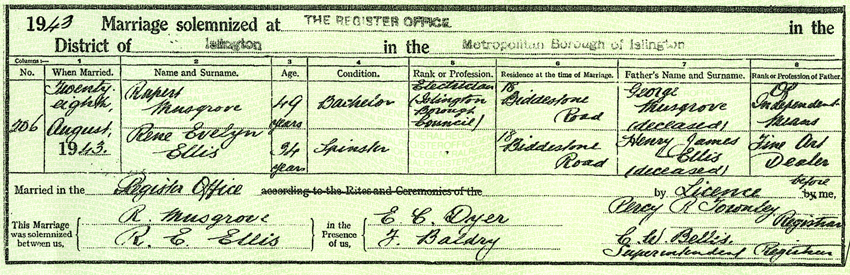 1943 Marriage solemnized at THE REGISTER OFFICE in the
District of Islington in the Metropolitan Borough of Islington
Columns:— 1 2 3 4 5 6 7 8
No. When Married. Name and Surname. Age. Condition. Rank or Profession. Residence at the time of Marriage. Father's Name and Surname. Rank or Profession of Father.
206 Twenty eighth August, 1943.
Rupert Musgrove 49 years Bachelor Electrician (Islington Borough Council) 18 Biddestone Road George Musgrove (deceased) Of Independent Means
Rene Evelyn Ellis 34 years Spinster 18 Biddestone Road Henry James Ellis (deceased) Fine Art Dealer
Married in the Register Office according to the Rites and Ceremonies of the by Licence before by me,
This Marriage was solemnized between us,
R. Musgrove
R. E. Ellis
in the Presence of us,
E. C. Dyer
F. Baldry
Percy R Townley Registrar
C. W. Bellis.
Superintendent Registrar